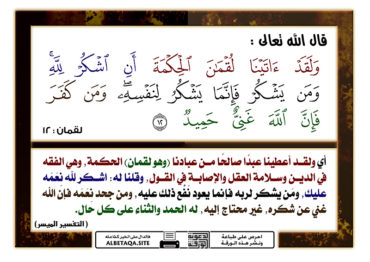 قال الله تعالى :
وَلَقَدْ ءَاتَيْنَا لُقْمَٰنَ ٱلْحِكْمَةَ أَنِ ٱشْكُرْ لِلَّهِۚ
وَمَن يَشْكُرْ فَإِنَّمَا يَشْكُرُ لِنَفْسِهِۦۖ وَمَن كَفَرَ
فَإِنَّ ٱللَّهَ غَنِىٌّ حَمِيدٌ ١٢
لقمان : ١٢
أي ولقـد أعطينا عبدًا صالحًا مـن عبادنا (وهو لقمان) الحكمـة، وهي الفقه
في الديـن وسـلامة العقل والإصابـة في القـول، وقلنا له: اشـكر لله نعمَه
عليك، ومَن يشكر لربه فإنما يعود نَفْع ذلك عليه، ومن جحد نعمَه فإن الله
غني عن شكره، غير محتاج إليه، له الحمد والثناء على كل حال.
( التفسير الميسر)
احرص على طباعة
ونشر هذه الورقة
ALBETAQA.SITE